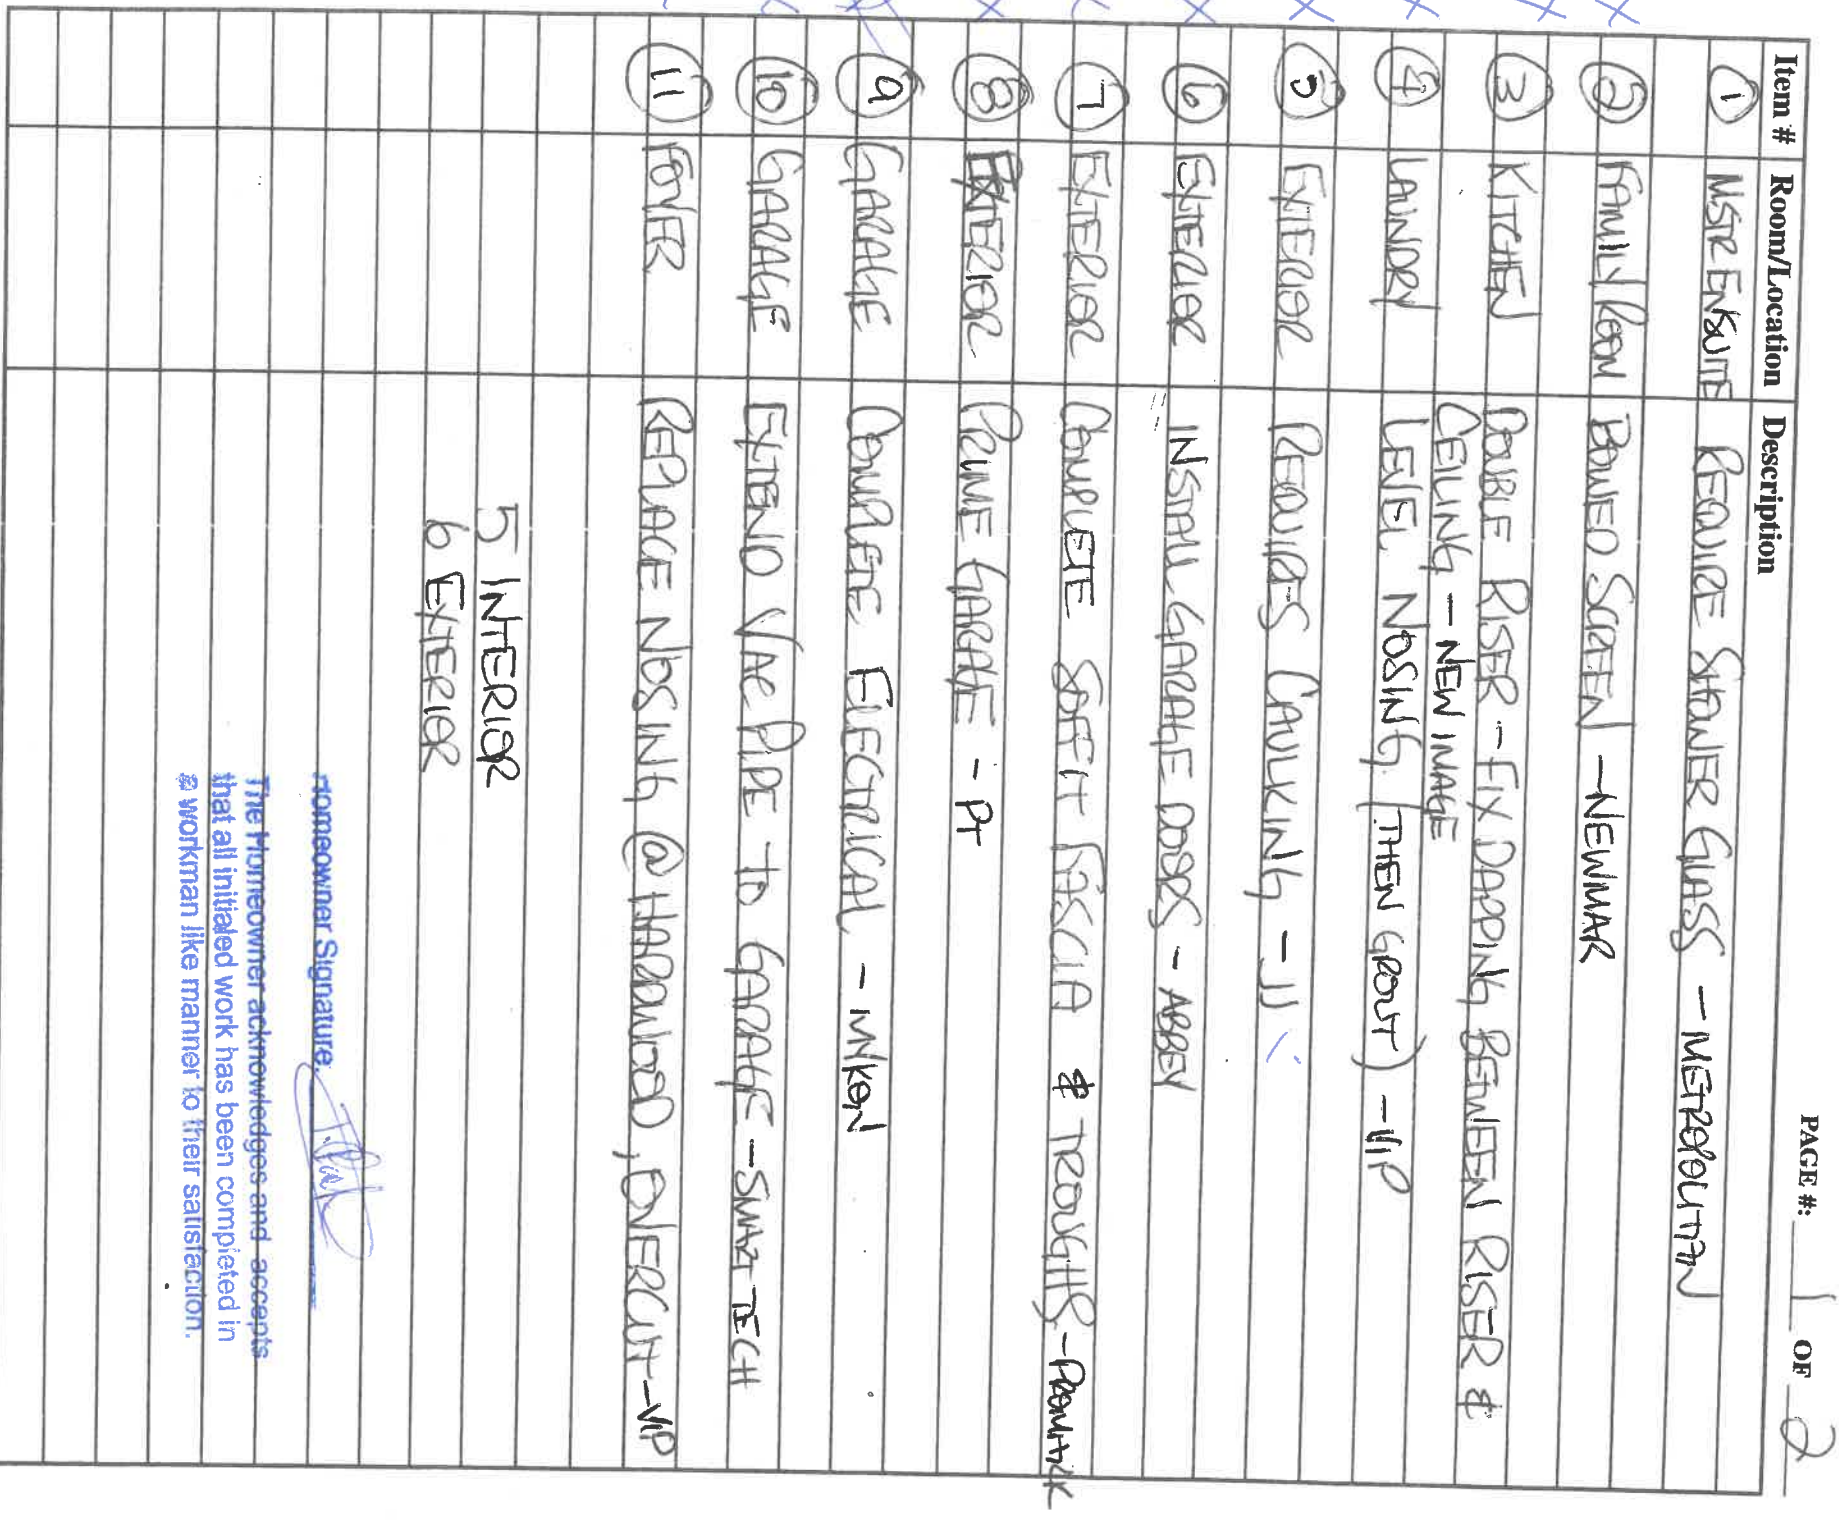 PAGE #: 1 OF 2
Item # Room/Location Description
1 MSTR ENSUITE REQUIRE SHOWER GLASS - METROPOLITAN
2 FAMILY ROOM BOWED SCREEN - NEWMAR
3 KITCHEN DOUBLE RISER - FIX DAPPING BETWEEN RISER &
CEILING - NEW IMAGE
4 LAUNDRY LEVEL NOSING (THEN GROUT) - VIP
5 EXTERIOR REQUIRES CAULKING - JJ
6 EXTERIOR INSTALL GARAGE DOORS - ABBEY
7 EXTERIOR COMPLETE SOFFIT FASCIA & TROUGHS -
8 EXTERIOR PRIME GARAGE - PT
9 GARAGE COMPLETE ELECTRICAL -
10 GARAGE EXTEND VAC PIPE to GARAGE - SMART TECH
11 FOYER REPLACE NOSING @ HARDWOOD, OVERCUT - VIP
5 INTERIOR
6 EXTERIOR
Homeowner Signature:
The Homeowner acknowledges and accepts
that all initialed work has been completed in
a workman like manner to their satisfaction.